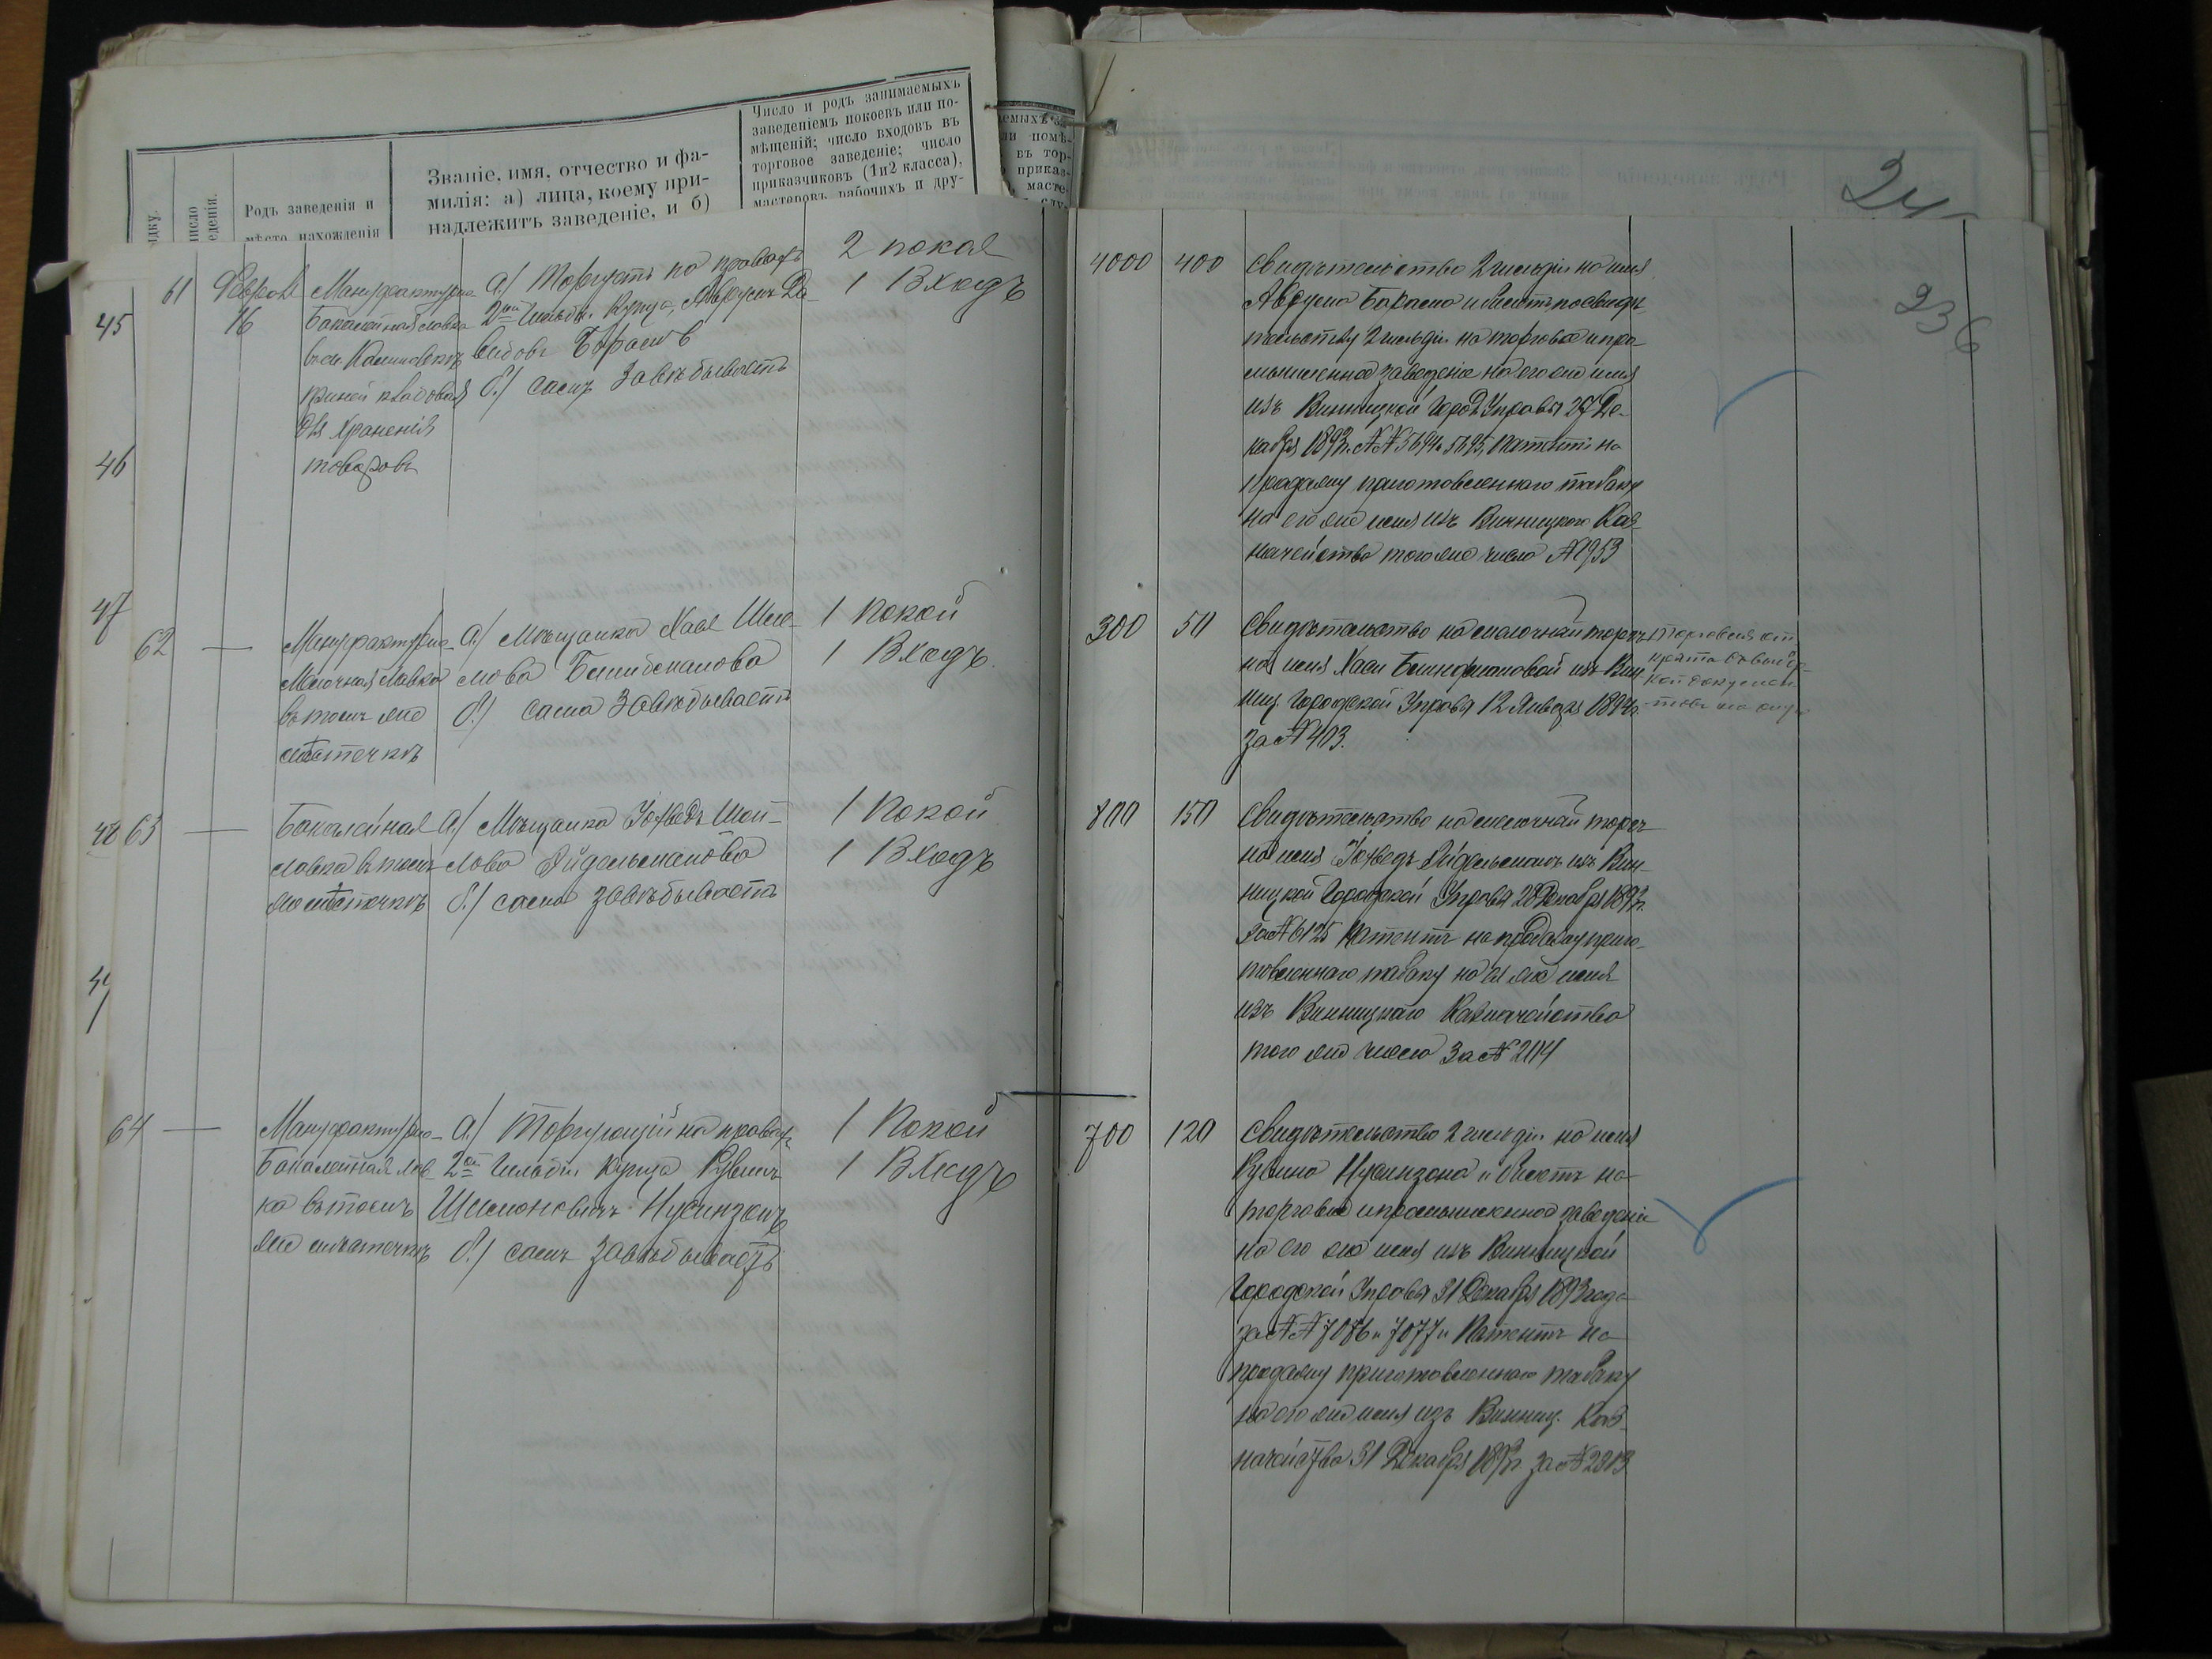 Родъ заведенія и
мѣсто нахожденія
Званіе, имя, отчество и фа-
милія: а) лица, коему при-
надлежитъ заведеніе, и б)
Число и родъ занимаемыхъ
заведеніемъ покоевъ или по-
мѣщеній; число входовъ въ
торговое заведеніе; число
приказчиковъ (1 и 2 класса),
мастеровъ, рабочихъ и дру-
24
236
45
46
47
48
49
61
16
Мануфактурно-
Бакалейная лавка
въ м. Калиновкѣ
при ней кладовая
для храненія
товаровъ
а) Торгуетъ на правахъ
2ой Гильдіи Купца, Аврумъ
б) самъ завѣдываетъ
2 покоя
1 Входъ
4000
400
Свидѣтельство 2 гильдіи на имя
Аврума и билетъ по свидѣ-
тельству 2 гильдіи на торговое и про-
мышленное заведеніе на его же имя
изъ Винницкой Город Управы 27 Де-
кабря 1893 г. №№ 5694 и 5695, Патентъ на
продажу приготовленнаго табаку
на его же имя изъ Винницкаго Каз-
начейства того же числа № 1953
62
Мануфактурно-
Мелочная Лавка
въ томъ же
мѣстечкѣ
а) Мѣщанка Хая
б) сама Завѣдываетъ
1 Покой
1 Входъ
300
50
Свидѣтельство на мелочный торгъ
на имя Хаи изъ Вин-
ниц. Городской Управы 12 Января 1894 г.
за № 403.
Торговля
63
Бакалейная
лавка въ томъ
же мѣстечкѣ
а) Мѣщанка
Эйдельманова
б) сама завѣдываетъ
1 Покой
1 Входъ
800
150
Свидѣтельство на мелочный торгъ
на имя Эйдельманъ изъ Вин-
ницкой Городской Управы 28 Декабря 1893 г.
за № 6125 Патентъ на продажу приго-
товленнаго табаку на ея же имя
изъ Винницкаго Казначейства
того же числа за № 2114
64
Мануфактурно-
Бакалейная лав-
ка въ томъ
же мѣстечкѣ
а) Торгующій на правахъ
2ой Гильдіи Купца Рувинъ
Шимоновичъ Нусинзонъ
б) самъ завѣдываетъ
1 Покой
1 Входъ
700
120
Свидѣтельство 2 гильдіи на имя
Рувина Нусинзона и Билетъ на
торговое и промышленное заведеніе
на его же имя изъ Винницкой
Городской Управы 31 Декабря 1893 года
за №№ 7076 и 7077 и Патентъ на
продажу приготовленнаго табаку
на его же имя изъ Винниц. Каз-
начейства 31 Декабря 1893 г за № 2813